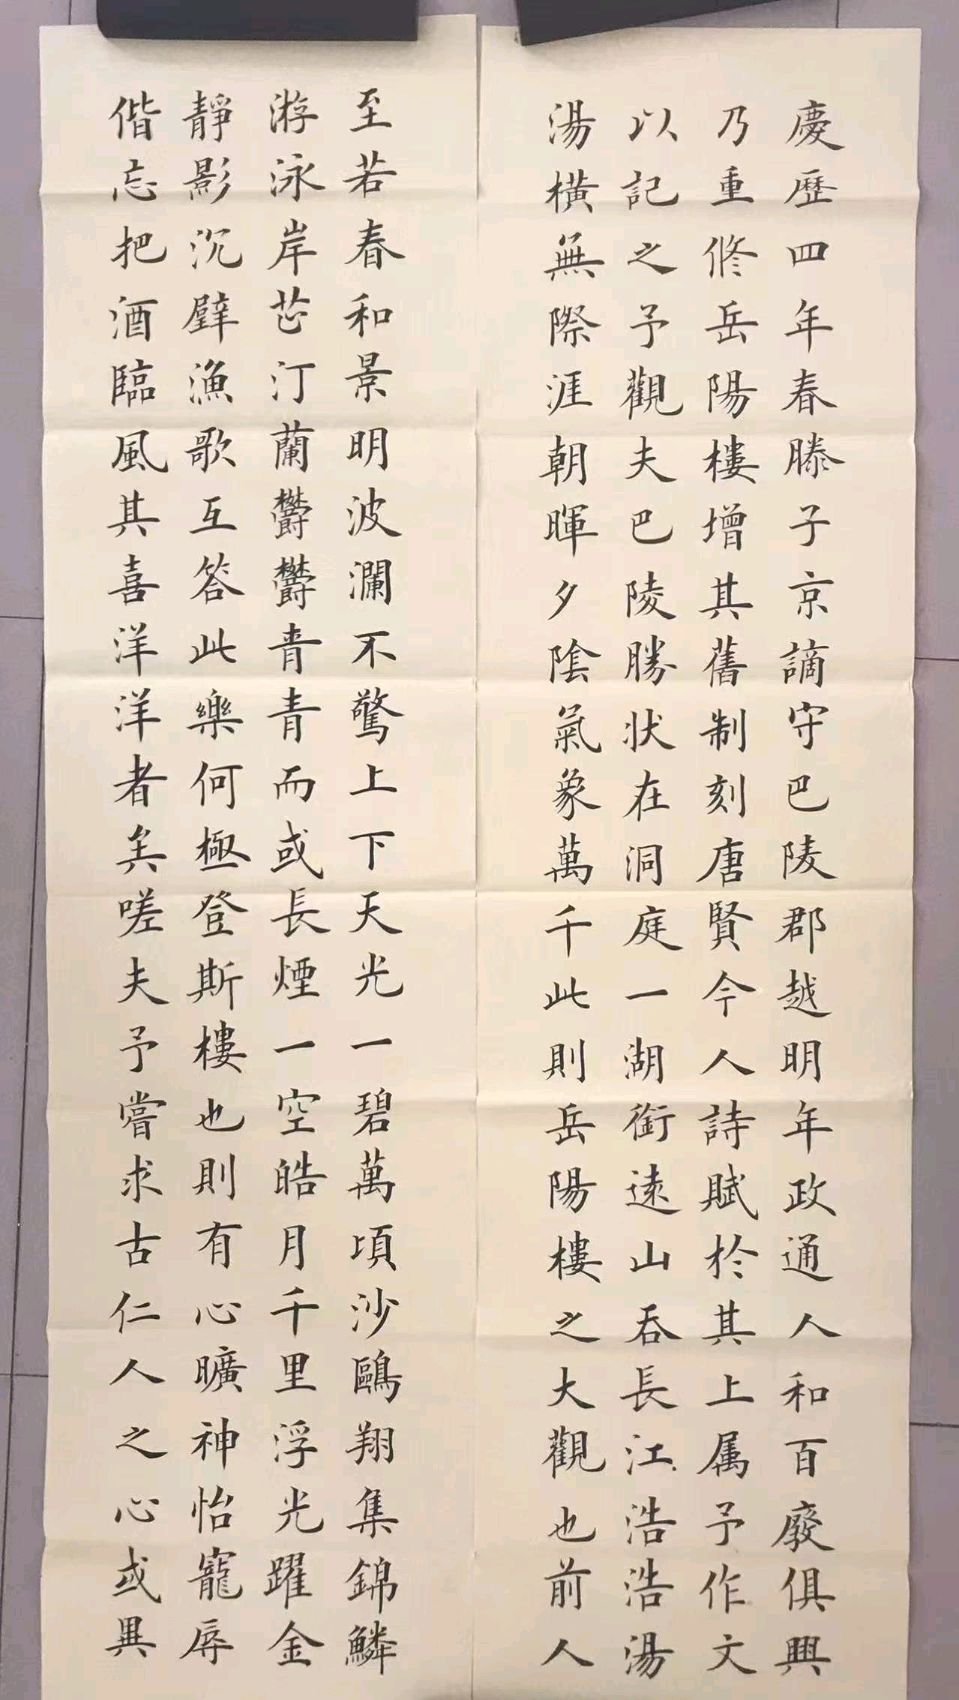 慶歷四年春滕子京謫守巴陵郡越明年政通人和百廢俱興
乃重修岳陽樓增其舊制刻唐賢今人詩賦於其上属予作文
以記之予觀夫巴陵勝状在洞庭一湖銜遠山吞長江浩浩湯
湯橫無際涯朝暉夕陰氣象萬千此則岳陽樓之大觀也前人
至若春和景明波瀾不驚上下天光一碧萬頃沙鷗翔集錦鱗
游泳岸芷汀蘭欝欝青青而或長煙一空皓月千里浮光躍金
靜影沉璧漁歌互答此樂何極登斯樓也則有心曠神怡寵辱
偕忘把酒臨風其喜洋洋者矣嗟夫予嘗求古仁人之心或異